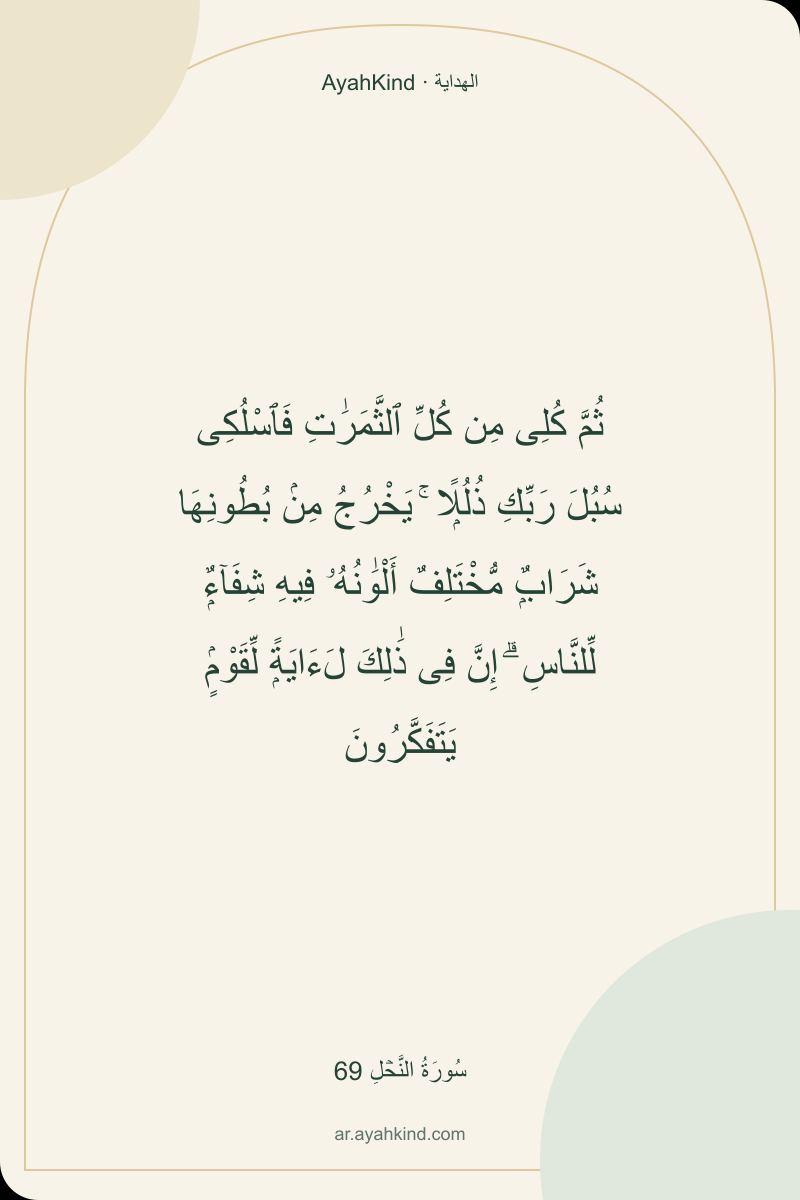 AyahKind · الهداية
ثُمَّ كُلِى مِن كُلِّ ٱلثَّمَرَٰتِ فَٱسْلُكِى
سُبُلَ رَبِّكِ ذُلُلًۭا ۚ يَخْرُجُ مِنۢ بُطُونِهَا
شَرَابٌۭ مُّخْتَلِفٌ أَلْوَٰنُهُۥ فِيهِ شِفَآءٌۭ
لِّلنَّاسِ ۗ إِنَّ فِى ذَٰلِكَ لَـَٔايَةًۭ لِّقَوْمٍۢ
يَتَفَكَّرُونَ
سُورَةُ النَّحۡلِ 69
ar.ayahkind.com